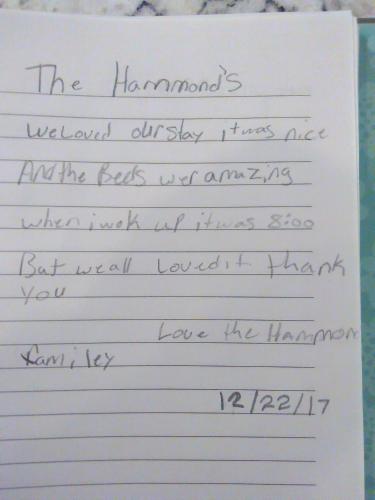 The Hammond's
We Loved our stay it was nice
And the Beds wer amazing
when i wok up it was 8:00
But we all Loved it thank
you
Love the Hammon
familey
12/22/17